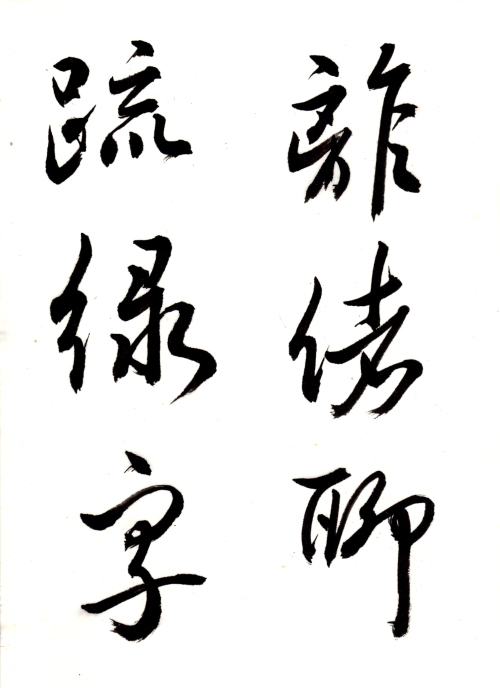 離緒聊
疏綠字